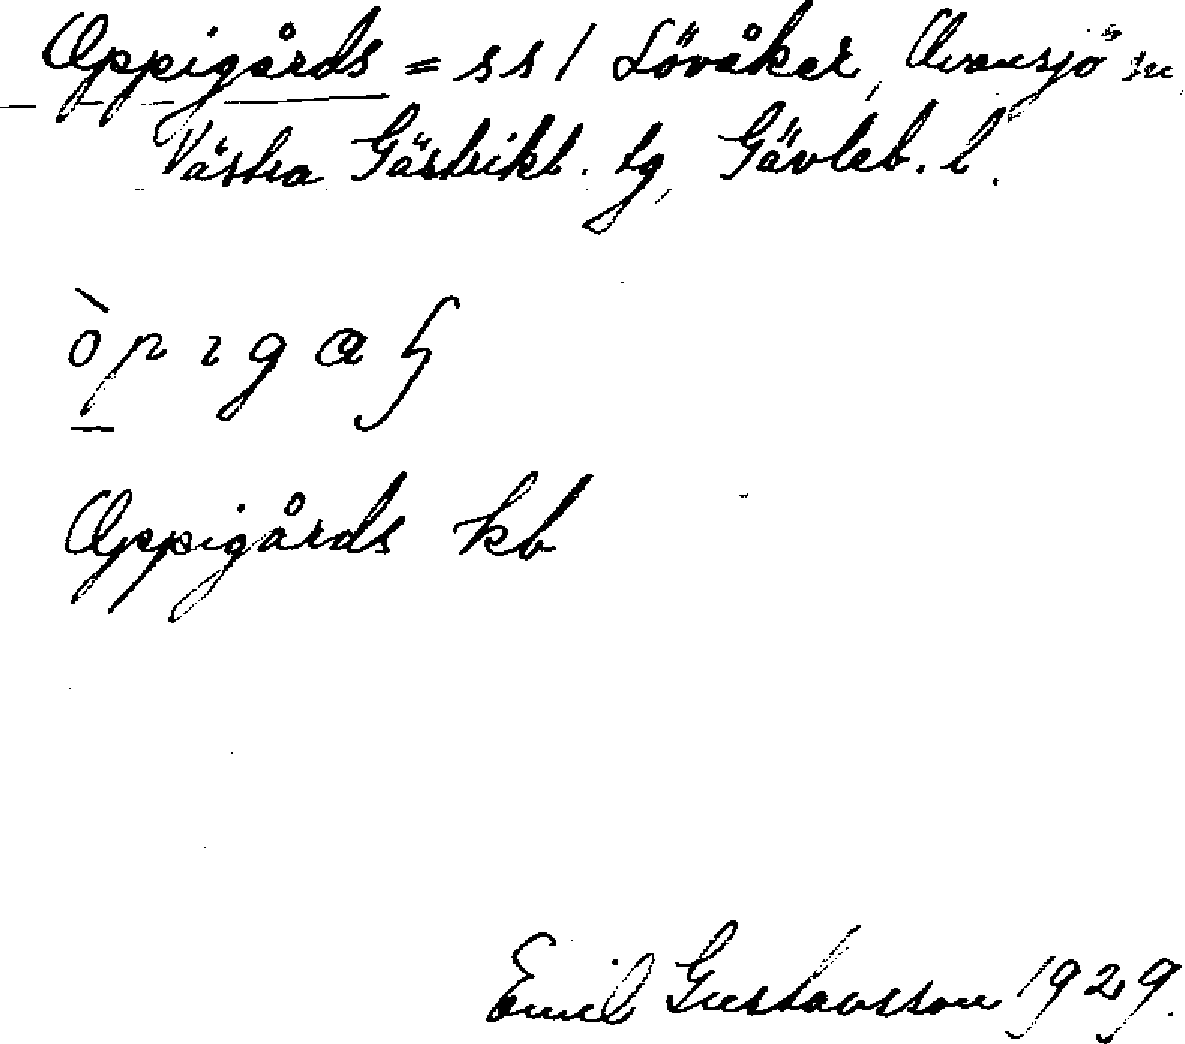 Oppigårds = s s 1 Lövåker, Ovansjö sn,
Västra Gästrikl. tg, Gävleb. l.
òpıga
Oppigårds kb
Emil Gustavsson 1929.